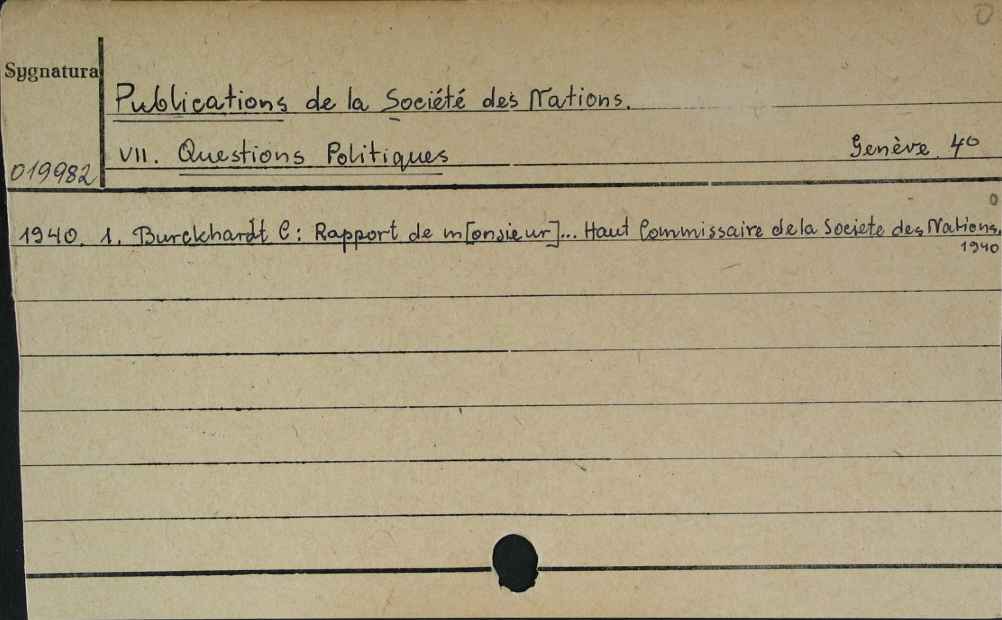 0
Sygnatura
Publications de la Société des Nations.
VII. Questions Politiques Genève 40
019982
0
1940. 1. Burckhardt C: Rapport de m[onsieur]... Haut Commissaire de la Societe des Nations.
1940